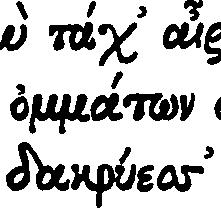 ὺ τάχ' αἶς
ὀμμάτων
δακρύεσσ'